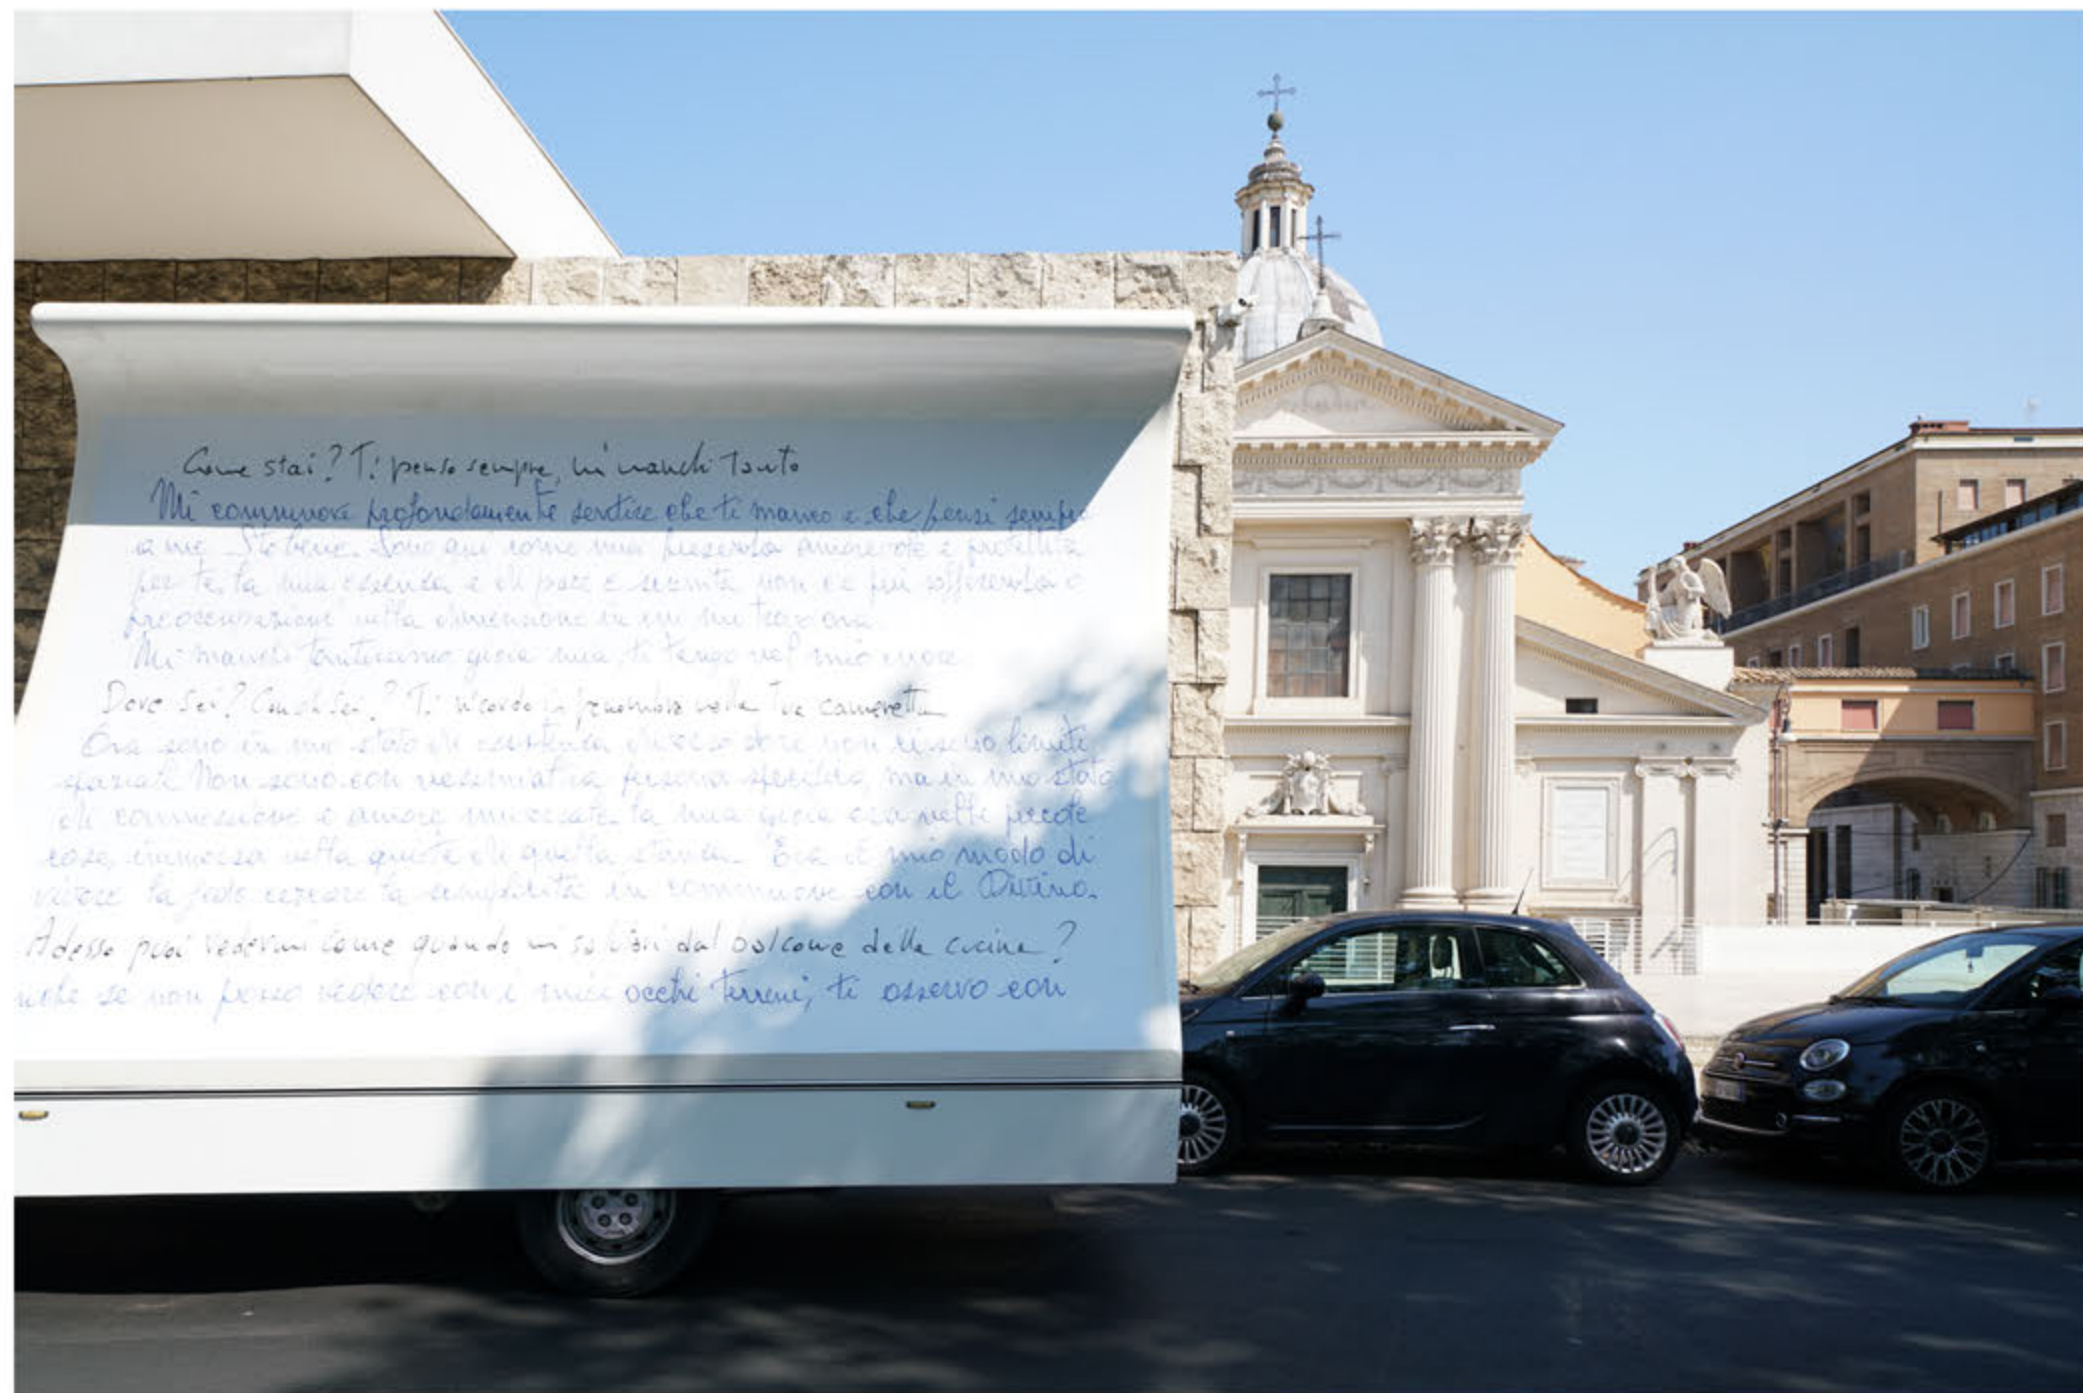 Come stai? Ti penso sempre, mi manchi tanto
Mi commuove profondamente sentire che ti manco e che pensi sempre
a me. Sto bene. Sono qui come una presenza amorevole e protettiva
per te. la mia essenza e di pace e serenità non c'e più sofferenza o
preoccupazioni nella dimensione in cui mi trovo ora.
Mi manchi tantissimo gioia mia, ti tengo nel mio cuore.
Dove sei? Con chi sei? Ti ricordo in penombra nella tua cameretta
Ora sono in uno stato di esistenza diverso dove non esistono limiti
spaziali Non sono con nessun'altra persona specifica, ma in uno stato
di connessione e amore universale. la mia gioia era nelle piccole
cose, immersa nella quiete di quella stanza. Era il mio modo di
vivere la fede cercare la semplicità in comunione con il Divino.
Adesso puoi vedermi come quando mi salutavi dal balcone della cucina?
se non posso vedere con i miei occhi terreni, ti osservo con